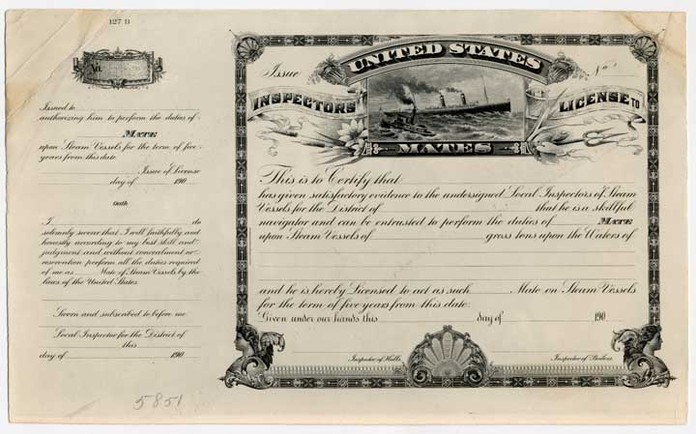 127 B
No.
Issued to
authorizing him to perform the duties of
MATE
upon Steam Vessels for the term of five
years from this date.
Issue of License
day of 190
Oath
I do
solemnly swear that I will faithfully and
honestly according to my best skill and
judgment and without concealment or
reservation perform all the duties required
of me as Mate of Steam Vessels by the
laws of the United States.
Sworn and subscribed to before me
Local Inspector for the District of
this
day of 190
5851
Issue No.
UNITED STATES
INSPECTORS LICENSE TO
MATES
This is to Certify that
has given satisfactory evidence to the undersigned Local Inspectors of Steam
Vessels for the District of that he is a skillful
navigator and can be entrusted to perform the duties of MATE
upon Steam Vessels of gross tons upon the Waters of
and he is hereby Licensed to act as such Mate on Steam Vessels
for the term of five years from this date.
Given under our hands this day of 190
Inspector of Hulls. Inspector of Boilers.